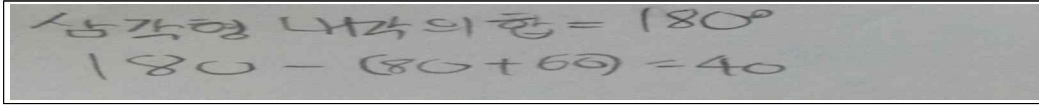 삼각형 내각의 합 = 180°
180 - (80+60) = 40